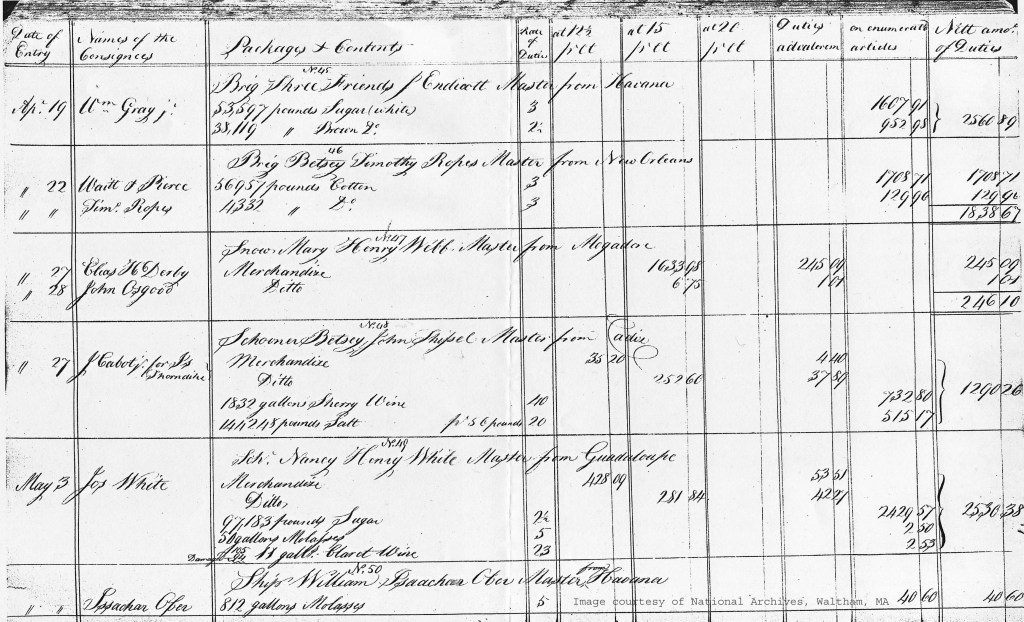 Date of Entry | Names of the Consignees | Packages & Contents | Rate of Duties | at 12½ pr Ct | at 15 pr Ct | at 20 pr Ct | Duties advalorem | on enumerated articles | Nett amo.t of Duties
No. 45
Brig Three Friends J Endicott Master from Havana
Apr. 19 Wm Gray jr. 53,597 pounds Sugar (white) 3 1607 91
38,119 " Brown Do 2½ 952 98 2560 89
46
Brig Betsey Timothy Ropes Master from New Orleans
" 22 Waitt & Pierce 56957 pounds Cotton 3 1708 71 1708 71
" " Timo. Ropes 4332 " Do 3 129 96 129 96
1838 67
No. 47
Snow Mary Henry Webb Master from Mogadore
" 27 Elias H Derby Merchandize 1633 98 245 09 245 09
" 28 John Osgood Ditto 6 75 1 01 1 01
246 10
No. 48
Schooner Betsey, John Master from Cadiz
" 27 J Cabot for Is Thorndike Merchandize 35 20 4 40
Ditto 252 60 37 89
1832 gallons Sherry Wine 40 732 80 1290 26
144248 pounds Salt pr 56 pounds 20 515 17
No. 49
Schr. Nancy Henry White Master from Guadeloupe
May 3 Jos White Merchandize 428 09 53 51
Ditto 281 84 42 27
97,183 pounds Sugar 2½ 2429 57 2530 38
50 gallons Molasses 5 2 50
11 gallo. Claret Wine 23 2 53
No. 50
Ship William, Issachar Ober Master from Havana
" " Issachar Ober 812 gallons Molasses 5 40 60 40 60
Image courtesy of National Archives, Waltham, MA